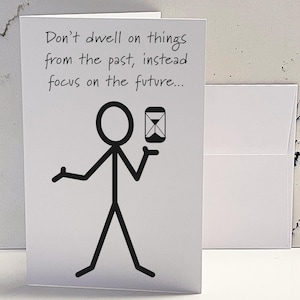 Don't dwell on things
from the past, instead
focus on the future...